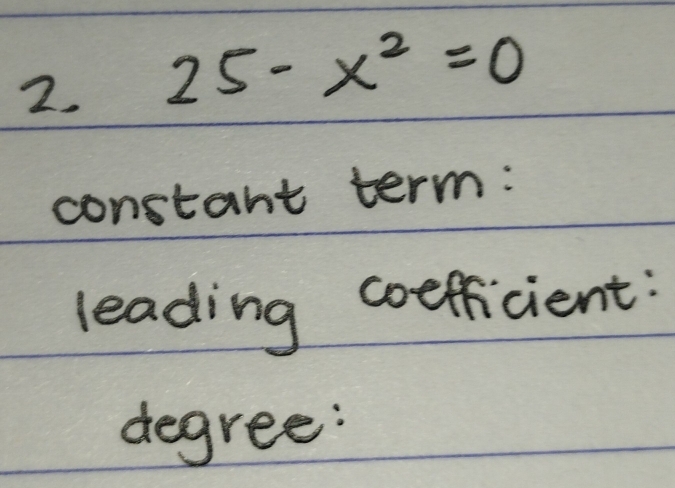 2. 25 - x² = 0
constant term:
leading coefficient:
degree: